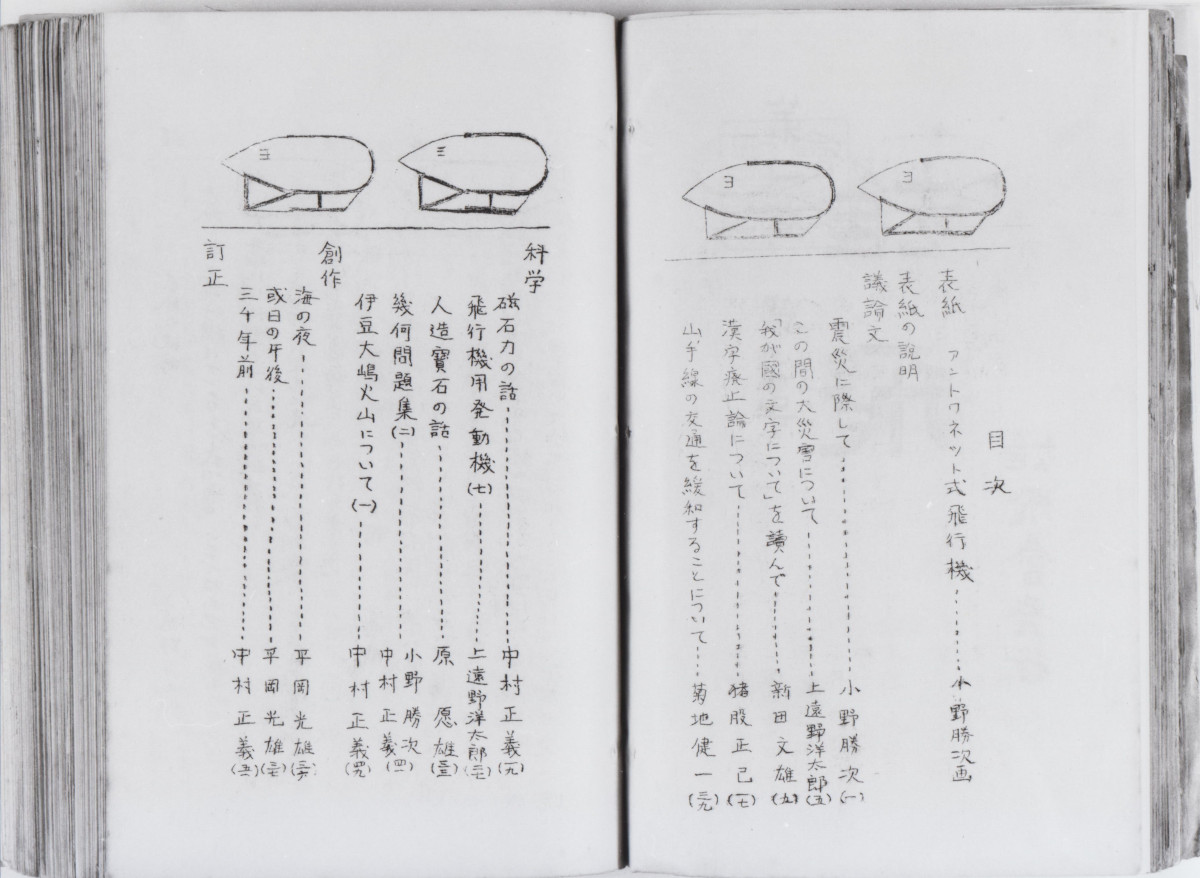 目次
表紙 アントワネット式飛行機………小野勝次画
表紙の説明
議論文
震災に際して………小野勝次(一)
この間の大災雪について………上遠野洋太郎(五)
「我が國の文字について」を讀んで………新田文雄(九)
漢字廃止論について………猪股正己(一七)
山手線の交通を緩和することについて………菊地健一
科学
磁石力の話………中村正義(一九)
飛行機用発動機(七)………上遠野洋太郎(二七)
人造寶石の話………原愿雄(三三)
幾何問題集(二)………小野勝次 中村正義(四一)
伊豆大嶋火山について(一)………中村正義(四九)
創作
海の夜………平岡光雄
或日の午後………平岡光雄
三千年前………中村正義
訂正